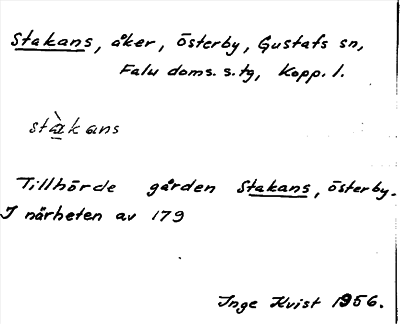 Stakans, åker, Österby, Gustafs sn,
Falu doms. s. tg, Kopp. l.
stàkans
Tillhörde gården Stakans, Österby.
I närheten av 179
Inge Kvist 1956.